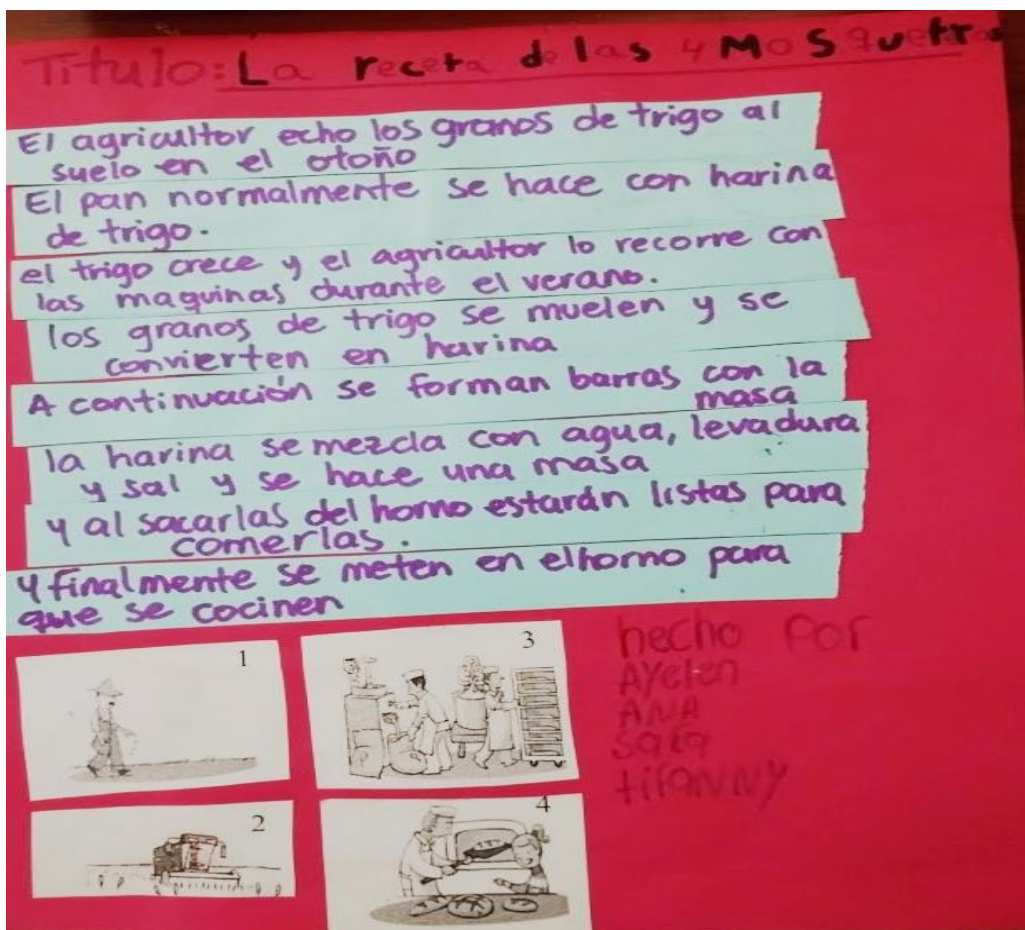 Título: La receta de las 4 Mosqueteras
El agricultor echo los granos de trigo al
suelo en el otoño
El pan normalmente se hace con harina
de trigo.
el trigo crece y el agricultor lo recorre con
las maquinas durante el verano.
los granos de trigo se muelen y se
convierten en harina
A continuación se forman barras con la
masa
la harina se mezcla con agua, levadura
y sal y se hace una masa
y al sacarlas del horno estarán listas para
comerlas.
y finalmente se meten en el horno para
que se cocinen
1
3
2
4
hecho por
Ayelen
ANA
Sara
tifANNY